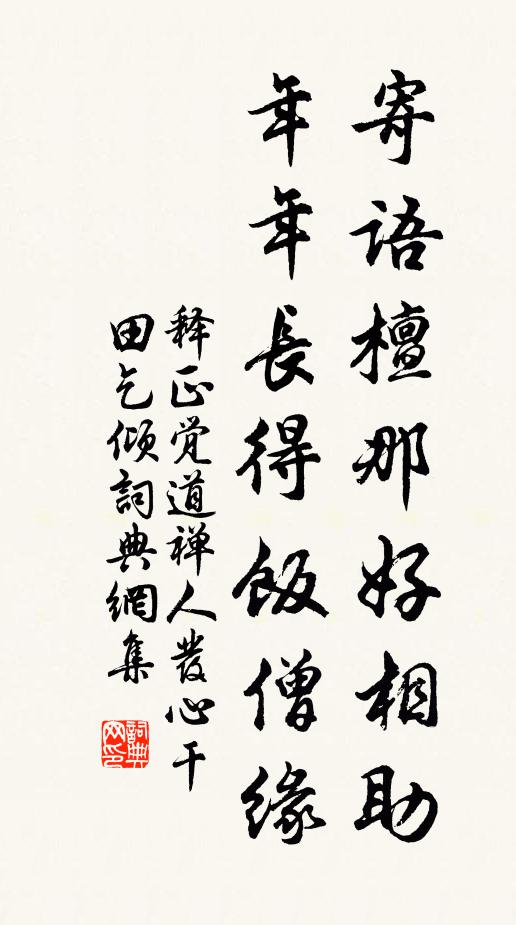 寄語檀那好相助
年年長得飯僧緣
释正觉道禅人發心干
田乞倾詞典網集
詞典
网印